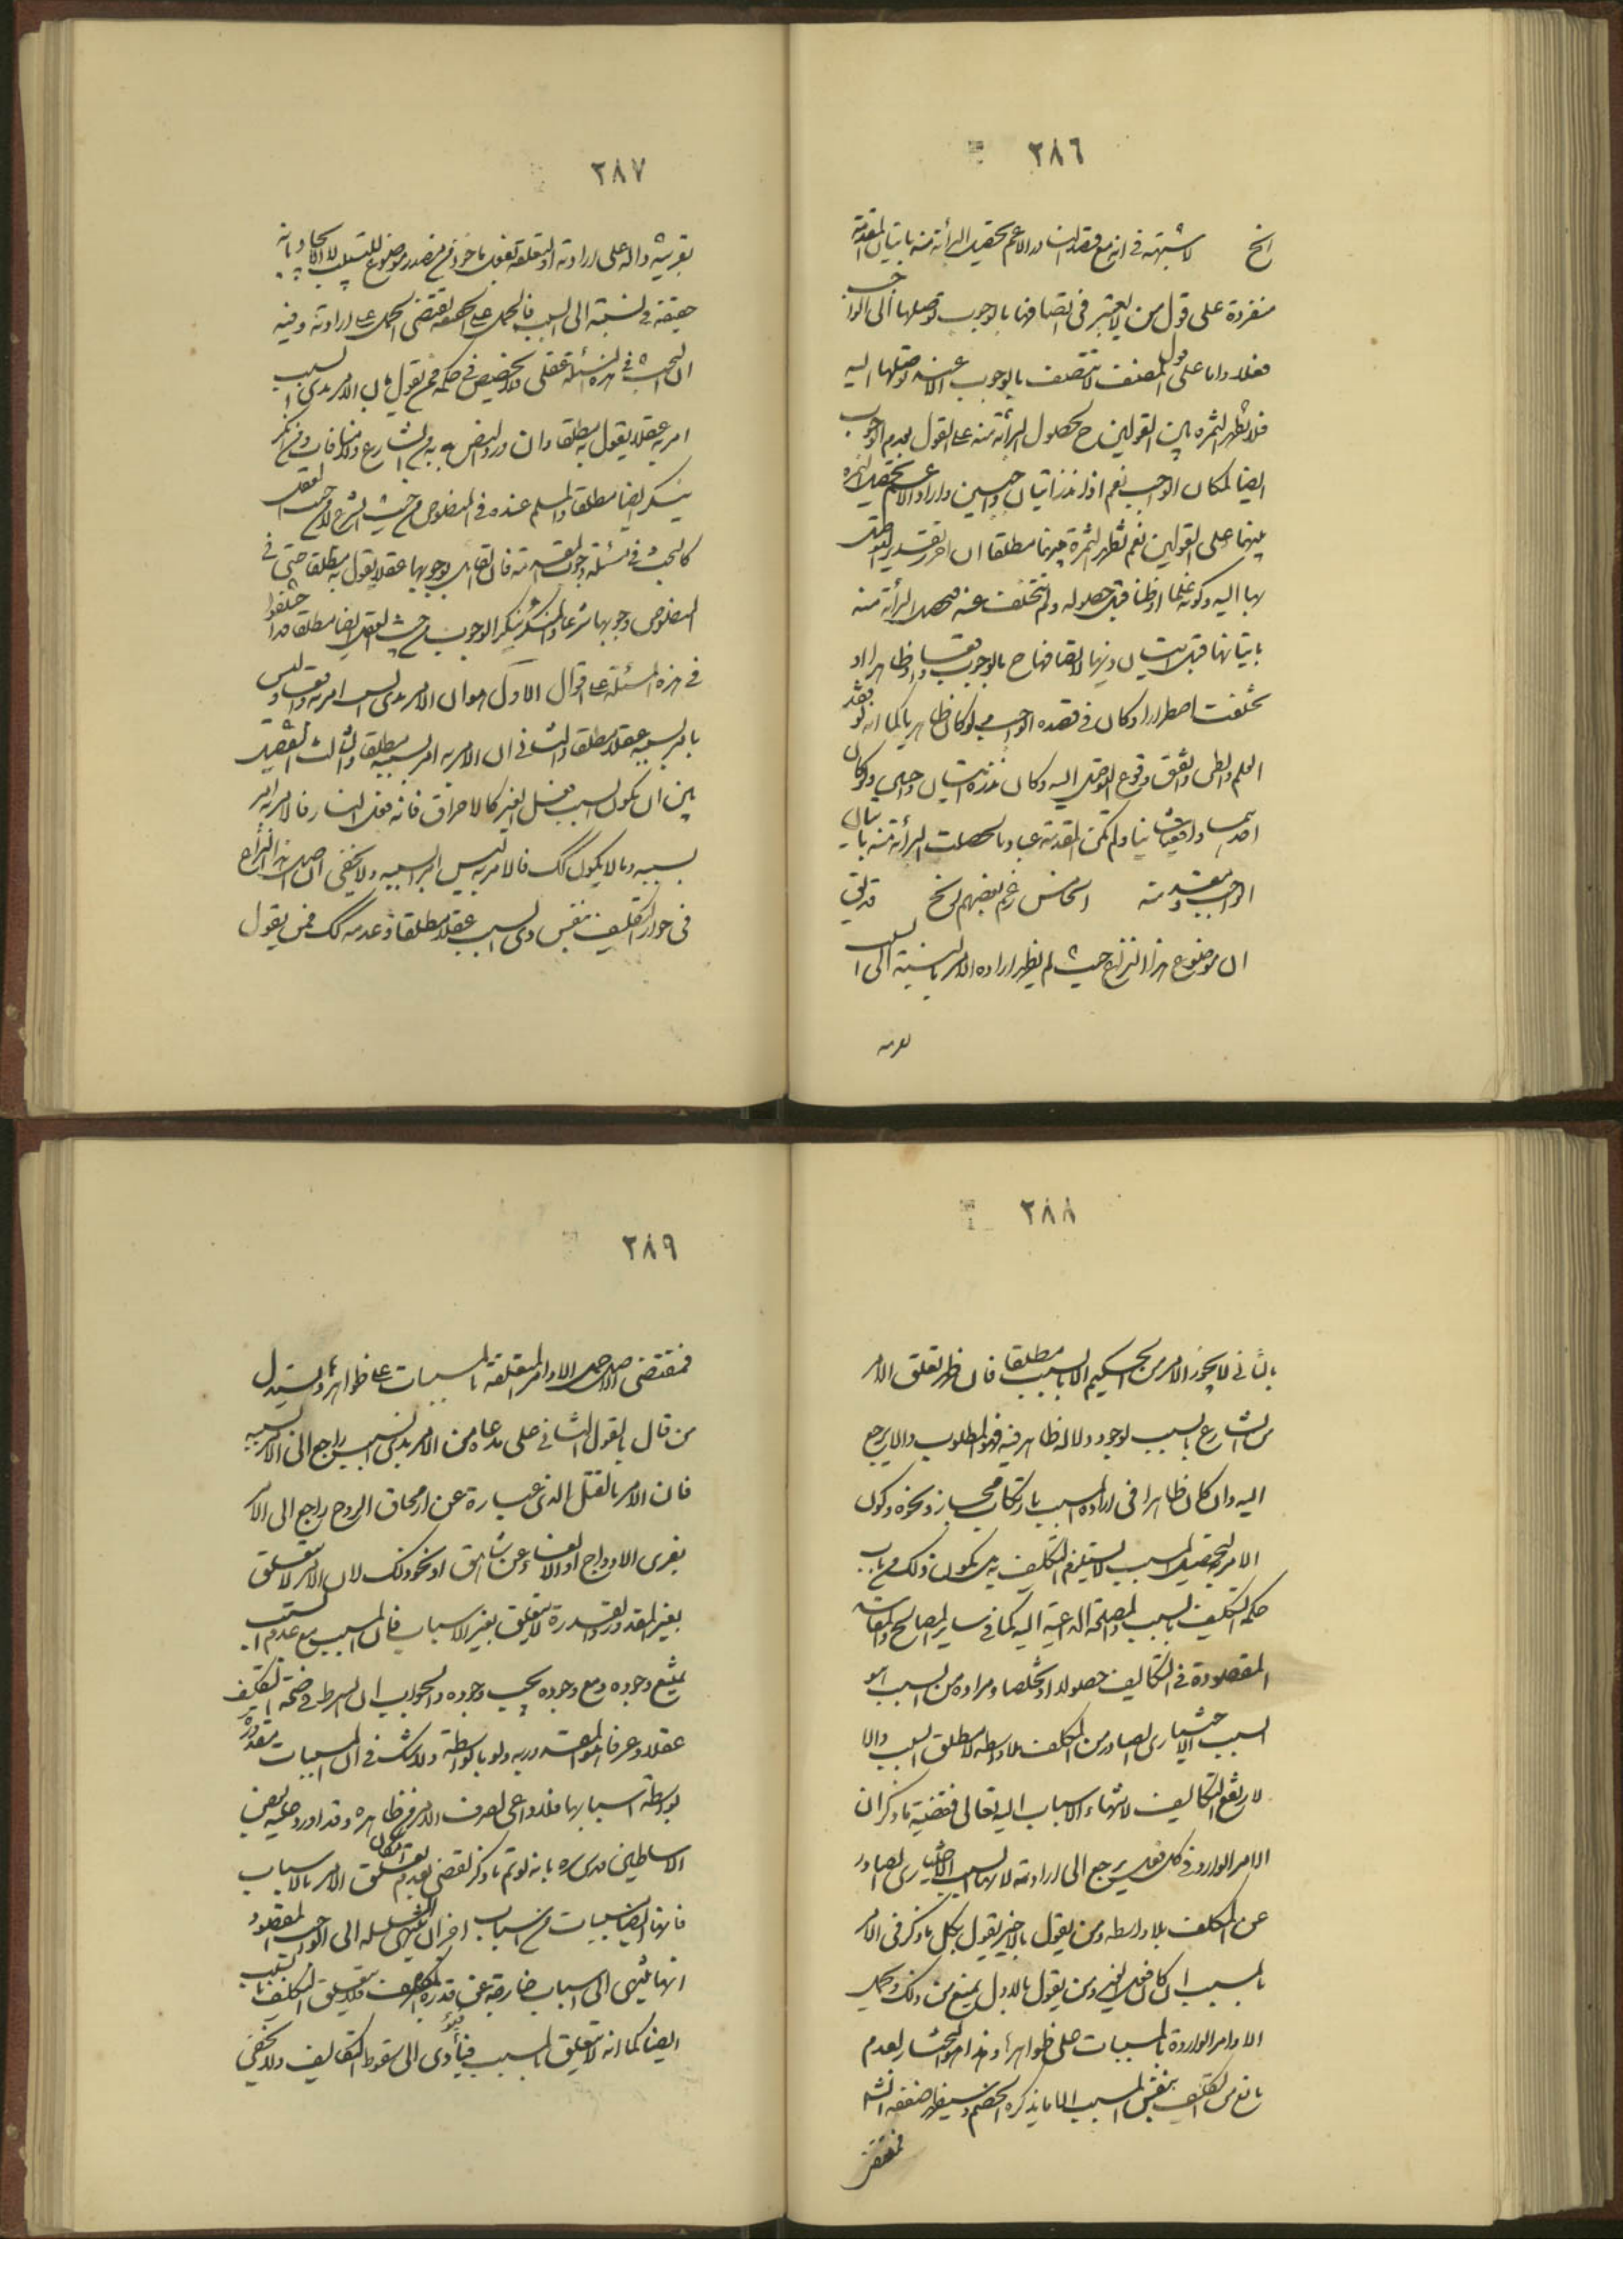 ٢٨٦
الخ لا شبهة في انه مع قصد الناذر الاعم يحصل البرأة منه باتيان المقدمة
منفردة على قول من لا يعتبر في اتصافها بالوجوب توصلها الى الواجب
فعلا واما على قول المصنف لا تتصف بالوجوب الا عند توصلها اليه
فلا تظهر الثمرة بين القولين ح لحصول البرأة منه على القول بعدم الوجوب
ايضا لمكان الواجب نعم اذا نذر اتيان واجبين واراد الاعم يحصل الثمرة
بينهما على القولين نعم تظهر الثمرة بينهما مطلقا ان احرز تقدير التوصل
بها اليه وكونه علما او ظنا قبل حصوله ولم تتخلف عنه فيحصل البرأة منه
باتيانها قبل اتيان ذيها لاتصافها ح بالوجوب واقعا وظاهرا او
تخلفت اضطرارا وكان في قصده الواجب ولو كان ظاهريا كما انه لو فقد
العلم والظن واتفق وقوع التوصل اليه وكان نذره اتيان واجب ولو كان
احدهما واقعيا ولم تكن المقدمة عبادة حصلت البرأة منه باتيان
الواجب ومقدمته الخامس زعم بعضهم الخ قد بقي
ان موضوع هذا النزاع حيث لم يظهر اراده الامر بالنسبة الى السبب
٢٨٧
بقرينة دالة على ارادته او تعلقه بفعل مأخوذ من مصدر موضوع للتسبيب لا الايجاد فانه
حقيقة في نسبته الى السبب فالحمل على الحقيقة يقتضي الحمل على ارادته وفيه
ان البحث في هذه المسئلة عقلي ولا تخصيص في حكمه فمن يقول بان الامر بذي السبب
امر به عقلا يقول به مطلقا وان ورد النص به من الشارع ولا منافات ومن انكر
ينكر ايضا مطلقا والمسلم عنده في المنصوص من حيث الشرع لا من حيث العقل
كالبحث في مسئلة وجوب المقدمة فان القائل بوجوبها عقلا يقول به مطلقا حتى في
المنصوص وجوبها شرعا والمنكر ينكر الوجوب من حيث العقل ايضا مطلقا قد اختلفوا
في هذه المسئلة على اقوال الاول هو ان الامر بذي السبب امر به واقعا وليس
بامر بسببه عقلا مطلقا والثاني ان الامر به امر بسببه مطلقا والثالث التفصيل
بين ان يكون المسبب فعل الغير كالاحراق فانه فعل النار فالامر به امر
بسببه وما لا يكون كك فالامر به ليس امرا بسببه ولا يخفى ان اصل هذا النزاع
في جواز التكليف بنفس ذي السبب عقلا مطلقا وعدمه كك فمن يقول
٢٨٨
بالثاني لا يجوز الامر من الحكيم الا بالسبب مطلقا فان ظهر تعلق الامر
من الشارع بالسبب لوجود دلالة ظاهر فيه فهو المطلوب والا يرجع
اليه وان كان ظاهرا في ارادة المسبب بارتكاب مجاز ونحوه وكون
الامر بتحصيل المسبب لا يستلزم التكليف به بل يكون ذلك من باب
حكمة التكليف بالسبب والمصلحة الداعية اليه كما في ساير المصالح والغايات
المقصودة في التكاليف حصولا او تخلصا ومراده من السبب هو
السبب الاختياري الصادر من المكلف بلا واسطة لا مطلق السبب والا
لارتفع التكاليف لانتهاء الاسباب اليه تعالى فقضية ما ذكر ان
الامر الوارد في كل فعل يرجع الى ارادته لانها السبب الاختياري الصادر
عن المكلف بلا واسطة ومن يقول بالاخير يقول بكل ما ذكر في الامر
بالمسبب ان كان فعل الغير ومن يقول بالاول يمنع من ذلك ويحمل
الاوامر الواردة بالمسببات على ظواهرها وهذا هو المختار لعدم
مانع من التكليف بنفس المسبب الا ما يذكره الخصم وسيظهر ضعفه انشه
فمقتضى
٢٨٩
فمقتضى الاصل حمل الاوامر المتعلقة بالمسببات على ظواهرها ويستدل
من قال بالقول الثاني على مدعاه من ان الامر بذي السبب راجع الى الامر بسببه
فان الامر بالقتل الذي عبارة عن ازهاق الروح راجع الى الامر
بفري الاوداج او الالقاء عن شاهق او نحو ذلك لان الامر لا يتعلق
بغير المقدور والقدرة لا تتعلق بغير الاسباب فان المسبب مع عدم السبب
يمتنع وجوده ومع وجوده يجب وجوده والجواب ان الشرط في صحة التكليف
عقلا وعرفا هو المقدورية ولو بالواسطة ولا شك في ان المسببات مقدورة
بواسطة اسبابها فلا داعي لصرف الامر عن ظاهره وقد اورد عليه بعض
الاساطين قدس سره بانه لو تم ما ذكر لقضى بعدم امكان تعلق الامر بالاسباب
فانها ايضا مسببات من اسباب اخر الى ان ينتهي السلسلة الى الواجب المقصود
انها تنتهي الى اسباب خارجة عن قدرة المكلف فلا يتعلق التكليف بالسبب
ايضا كما انه لا يتعلق بالمسبب فيتأدى الى سقوط التكاليف ولا يخفى